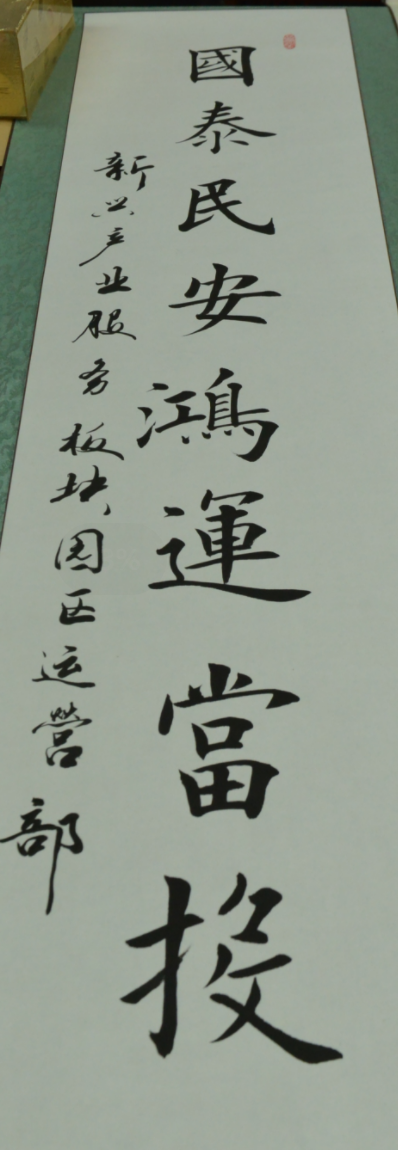 國泰民安鴻運當投
新兴产业服务板块园区运营部